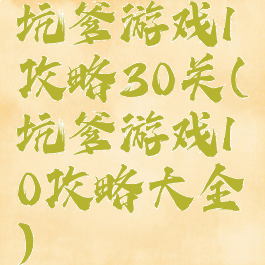 坑爹游戏1
攻略30关(
坑爹游戏1
0攻略大全
)